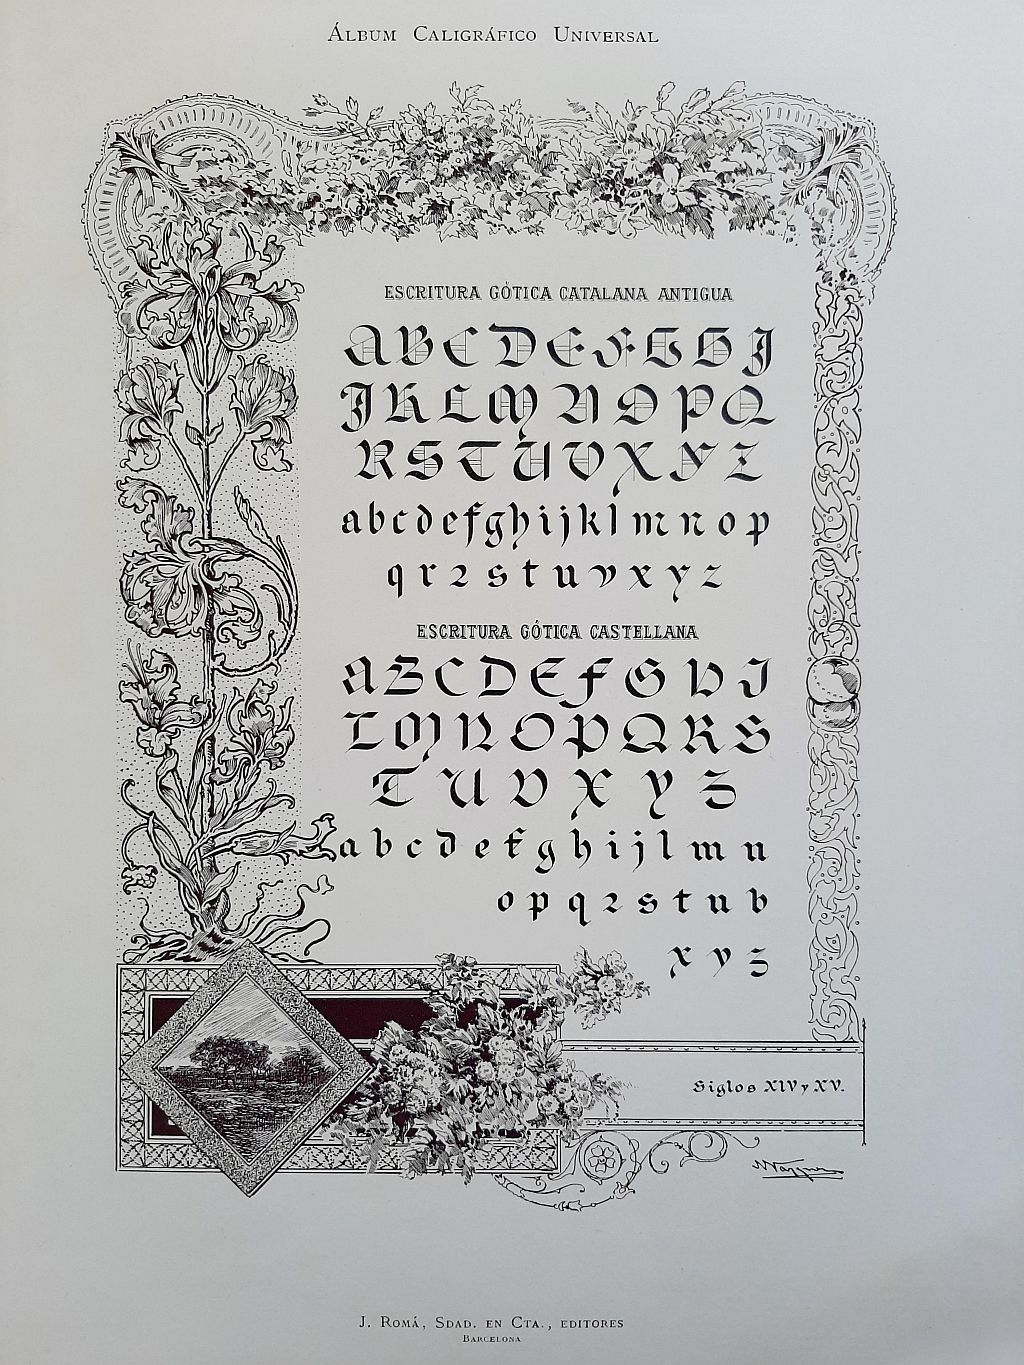 ÁLBUM CALIGRÁFICO UNIVERSAL
ESCRITURA GÓTICA CATALANA ANTIGUA
A B C D E F G H I
J K L M N O P Q
R S T U V X Y Z
a b c d e f g h i j k l m n o p
q r 2 s t u v x y z
ESCRITURA GÓTICA CASTELLANA
A B C D E F G H I
L M N O P Q R S
T U V X Y Z
a b c d e f g h i j l m n
o p q 2 s t u b
x y z
Siglos XIV y XV.
J. ROMÁ, SDAD. EN CTA., EDITORES
BARCELONA